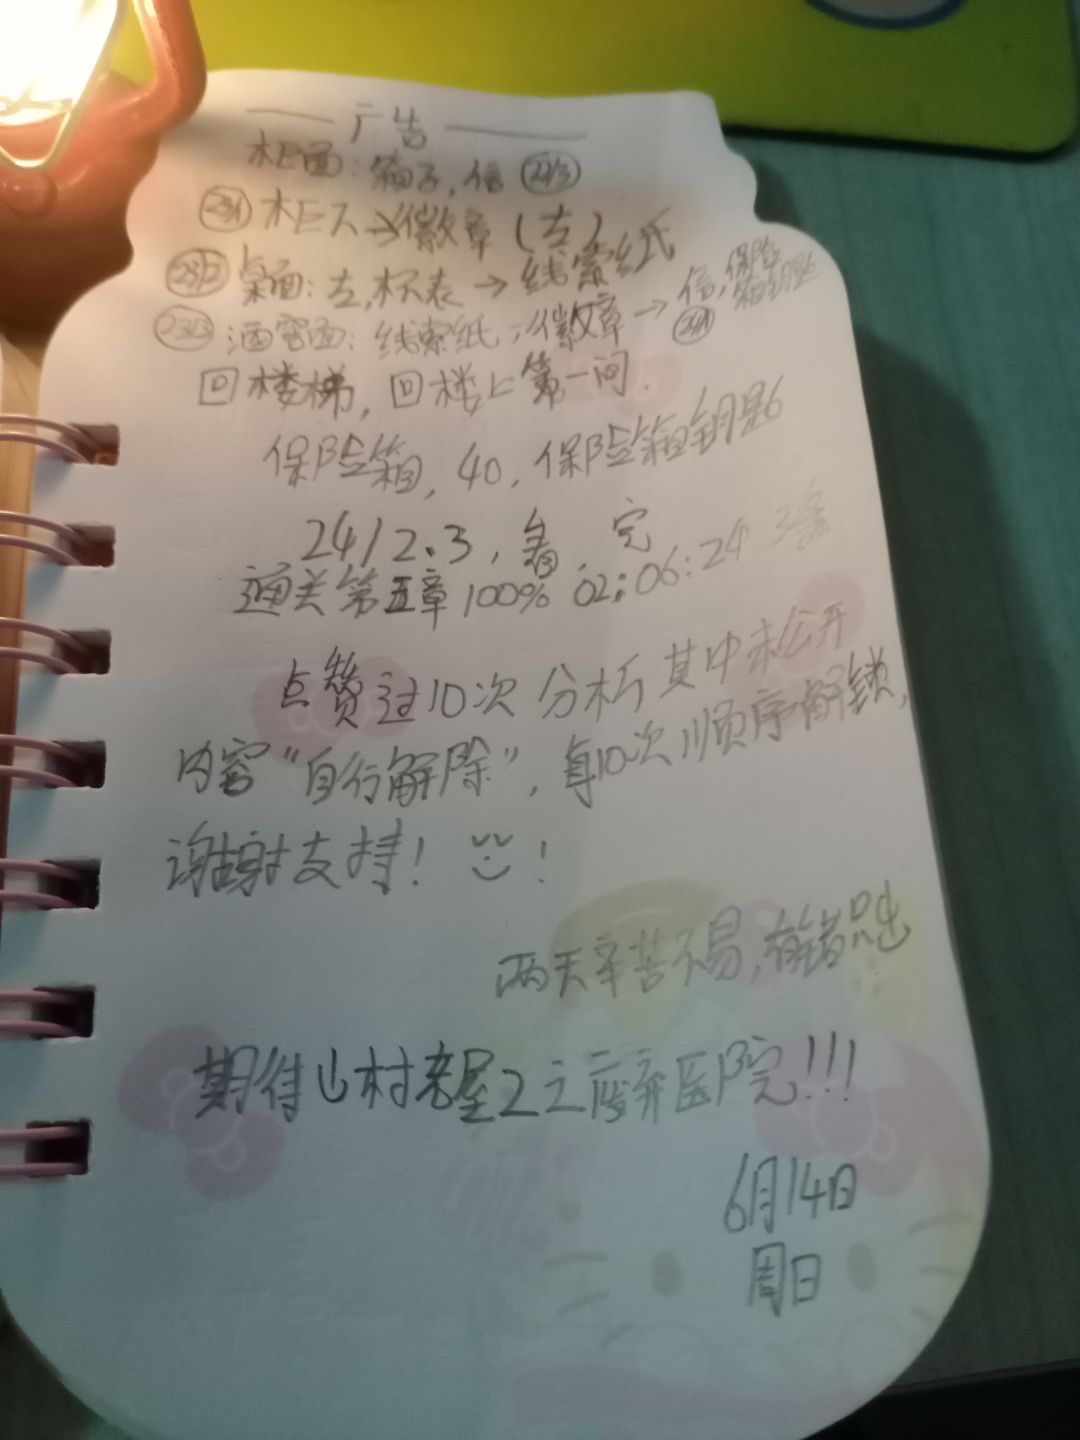 广告
柜面:箱子,信 (23/3)
(23/1) 柜下→徽章(左)
(23/2) 桌面:左,杯表→线索纸
(23/3) 酒窖面:线索纸,徽章→信,保险箱钥匙
回楼梯,回楼上第一间.
保险箱,40,保险箱钥匙
24/2.3,看,完
通关第五章100% 02:06:24
点赞过10次 分析其中未公开
内容“自行解除”,每10次顺序解锁,
谢谢支持! !
两天辛苦不易,有错
期待山村老屋2之废弃医院!!!
6月14日
周日